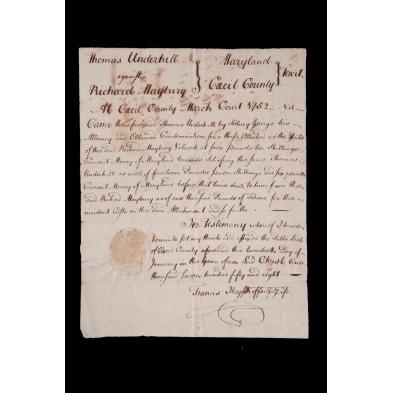 Thomas Underhill
against
Richard Maybury
Maryland
Cecil County
At Cecil County March Court 1752
Came the said Thomas Underhill by Sidney George his
Attorney and Obtained Condemnation from these
of the said Richard Maybury Valued at four pounds ten Shillings
Current Money of Maryland towards Satisfying the same Thomas
Underhill as well of fourteen Pounds Shillings and six pence
Current Money of Maryland before that time due to him from the
said Richard Maybury as of one thousand Pounds of Tobacco for the
Costs on this same Attachment and so forth
In Testimony whereof I have
hereunto set my Hand and affix'd the Public Seal
of Cecil County aforesaid this twentieth Day of
January in the Year of our Lord Christ One
thousand Seven hundred fifty and eight
Francis